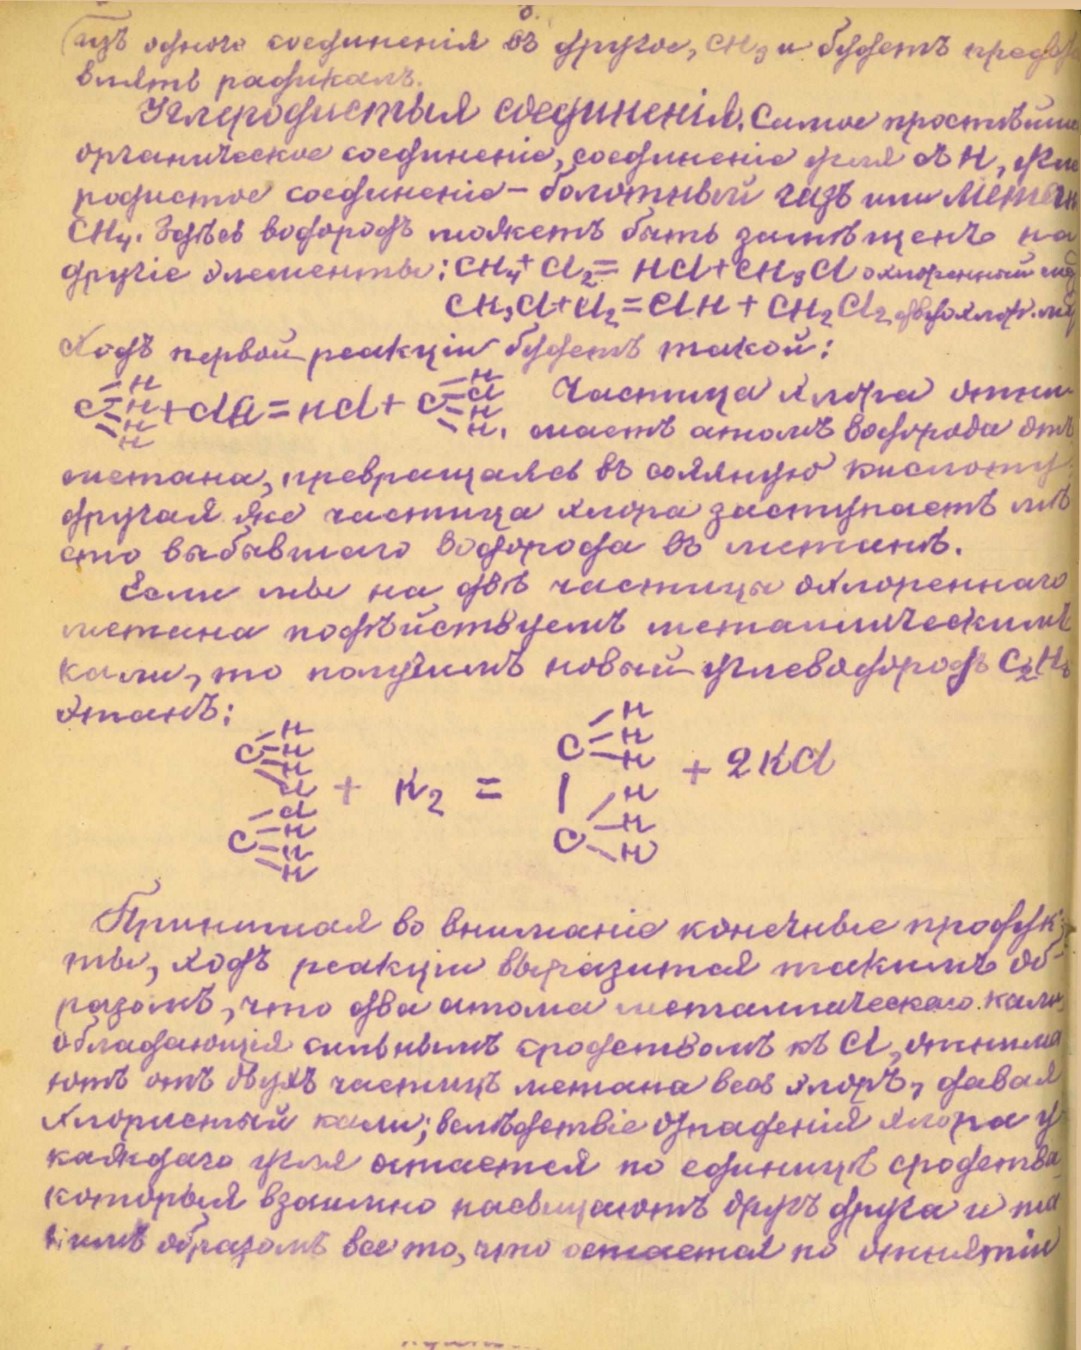 8.
изъ одного соединенія въ другое, CH3 и будетъ
влять радикалъ.
Углеродистыя соединенія. Самое простѣйшее
органическое соединеніе, соединеніе угля съ H, угле
родистое соединеніе – болотный газъ или Метанъ
CH4. Здѣсь водородъ можетъ быть замѣщенъ на
другіе элементы: CH4 + Cl2 = HCl + CH3Cl охлоренный
CH3Cl + Cl2 = ClH + CH2Cl2
Ходъ первой реакціи будетъ такой:
C H H H H + ClCl = HCl + C H Cl H H. Частица хлора отни
маетъ атомъ водорода отъ
метана, превращаясь въ соляную кислоту,
другая же частица хлора заступаетъ мѣ
сто выбывшаго водорода въ метанѣ.
Если мы на двѣ частицы охлореннаго
метана подѣйствуемъ металлическимъ
кали, то получимъ новый углеводородъ C2H6
этанъ:
C H H H Cl
Cl H H H C + K2 = C H H H | C H H H + 2KCl
Принимая во вниманіе конечные продук
ты, ходъ реакціи выразится такимъ об-
разомъ, что два атома металлическаго кали,
обладающія сильнымъ сродствомъ къ Cl, отнима
ютъ отъ двухъ частицъ метана весь хлоръ, давая
хлористый кали; вслѣдствіе отпаденія хлора у
каждаго угля остается по единицѣ сродства
которыя взаимно насыщаютъ другъ друга и та
кимъ образомъ все то, что остается по отнятіи